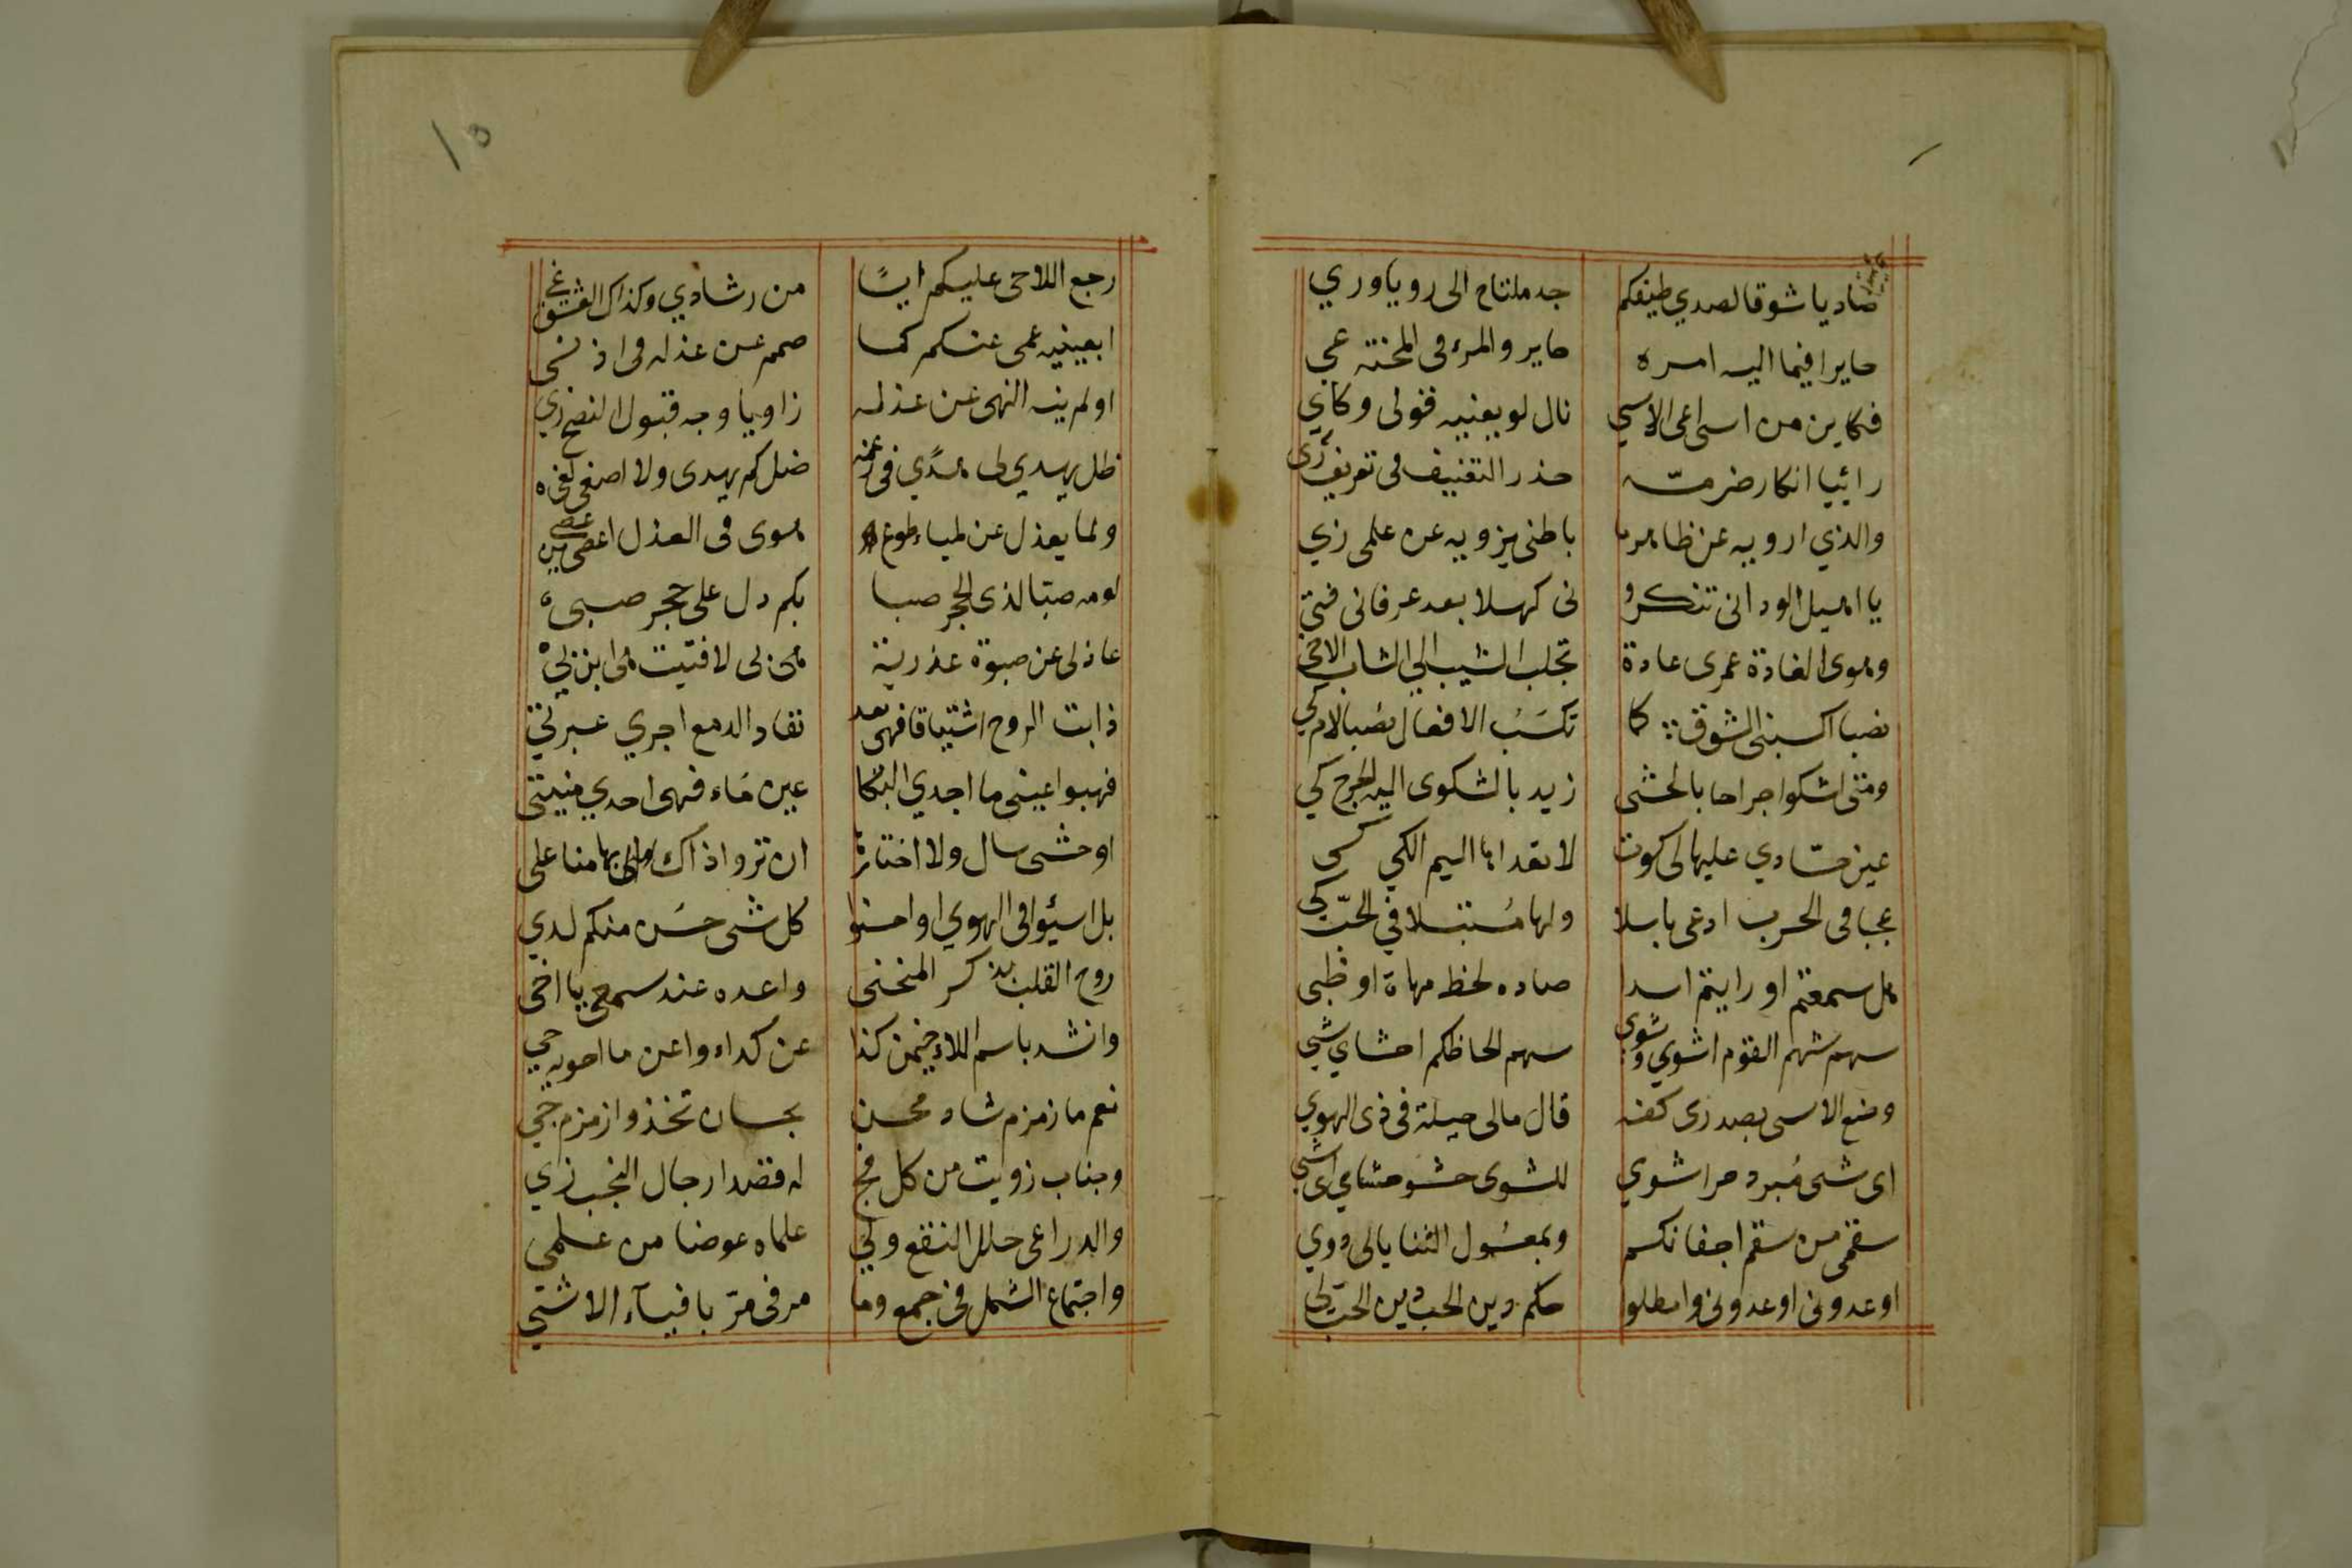 صاديا شوقا لصدي طيفكم جد ملتاح الى رويا وري
حايرا فيما اليه امره حاير والمرء فى المحنة عي
فكاين من اسى اعى الاسي نال لو يعنيه قولى وكاي
رائيا انكار ضر مسه حذر التعنيف فى تعريف رى
والذي ارويه عن ظاهر ما باطنى يزويه عن علمى زي
يا اهيل الود انى تنكرو نى كهلا بعد عرفانى فتي
وهوى الغادة عمرى عادة تجلب الشيب الي الشاب الاحي
نصبا اكسبنى الشوق كما تكسب الافعال نصبا لام كي
ومتى اشكوا جراحا بالحشى زيد بالشكوى اليه الجرح كي
عين حسادي عليها لى كوت لا تعداها اليم الكي كى
عجبا فى الحرب ادعى باسلا ولها مستبسلا في الحب كى
هل سمعتم او رايتم اسدا صاده لحظ مهاة او ظبى
سهم شهم القوم اشوي وشوى سهم الحاظكم احشاي شي
وضع الاسى بصدرى كفه قال مالى حيلة فى ذى الهوي
اى شى مبرد حرا شوي للشوى حشو حشاي اى شي
سقمى من سقم اجفانكم وبمعسول الثنايا لى دوي
اوعدونى او عدونى وامطلوا حكم دين الحب دين الحب لى
١٥
رجع اللاحى عليكم ايسا من رشادي وكذاك العشق غي
ابعينيه عمى عنكم كما صمم عن عذله فى اذنى
اولم ينه النهى عن عذله زاويا وجه قبول النصح زي
ظل يهدي لى هدًي فى زعمه ضل كم يهدى ولا اصغى لغى
ولما يعذل عن لمياء طوع هوى فى العذل اعصى من عصى
لومه صبا لذى الحجر صبا بكم دل على حجر صبى
عاذلى عن صبوة عذرية هى بى لا فتيت هى ابن بي
ذابت الروح اشتياقا فهى بعد نفاد الدمع اجري عبرتي
فهبوا عينى ما اجدي البكا عين ماء فهى احدي منيتى
او حشى سال ولا اختاره ان تروا ذاك بها منا على
بل اسيئوا فى الهوي او احسنوا كل شى حسن منكم لدي
روح القلب بذكر المنحنى واعده عند سمعى يا اخى
وانشد باسم اللاء خيمن كذا عن كداء واعن ما احويه حي
نعم ما زمزم شاد محسن بحسان تخذوا زمزم جي
وجناب زويت من كل فج له قصدا رجال النجب زي
وادراعى حلل النقع ولى علماه عوضا من علمي
واجتماع الشمل فى جمع وما مر فى مر بافياء الاشتي